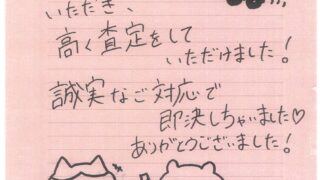 いただき、
高く査定をして
いただけました!
誠実なご対応で
即決しちゃいました♡
ありがとうございました!